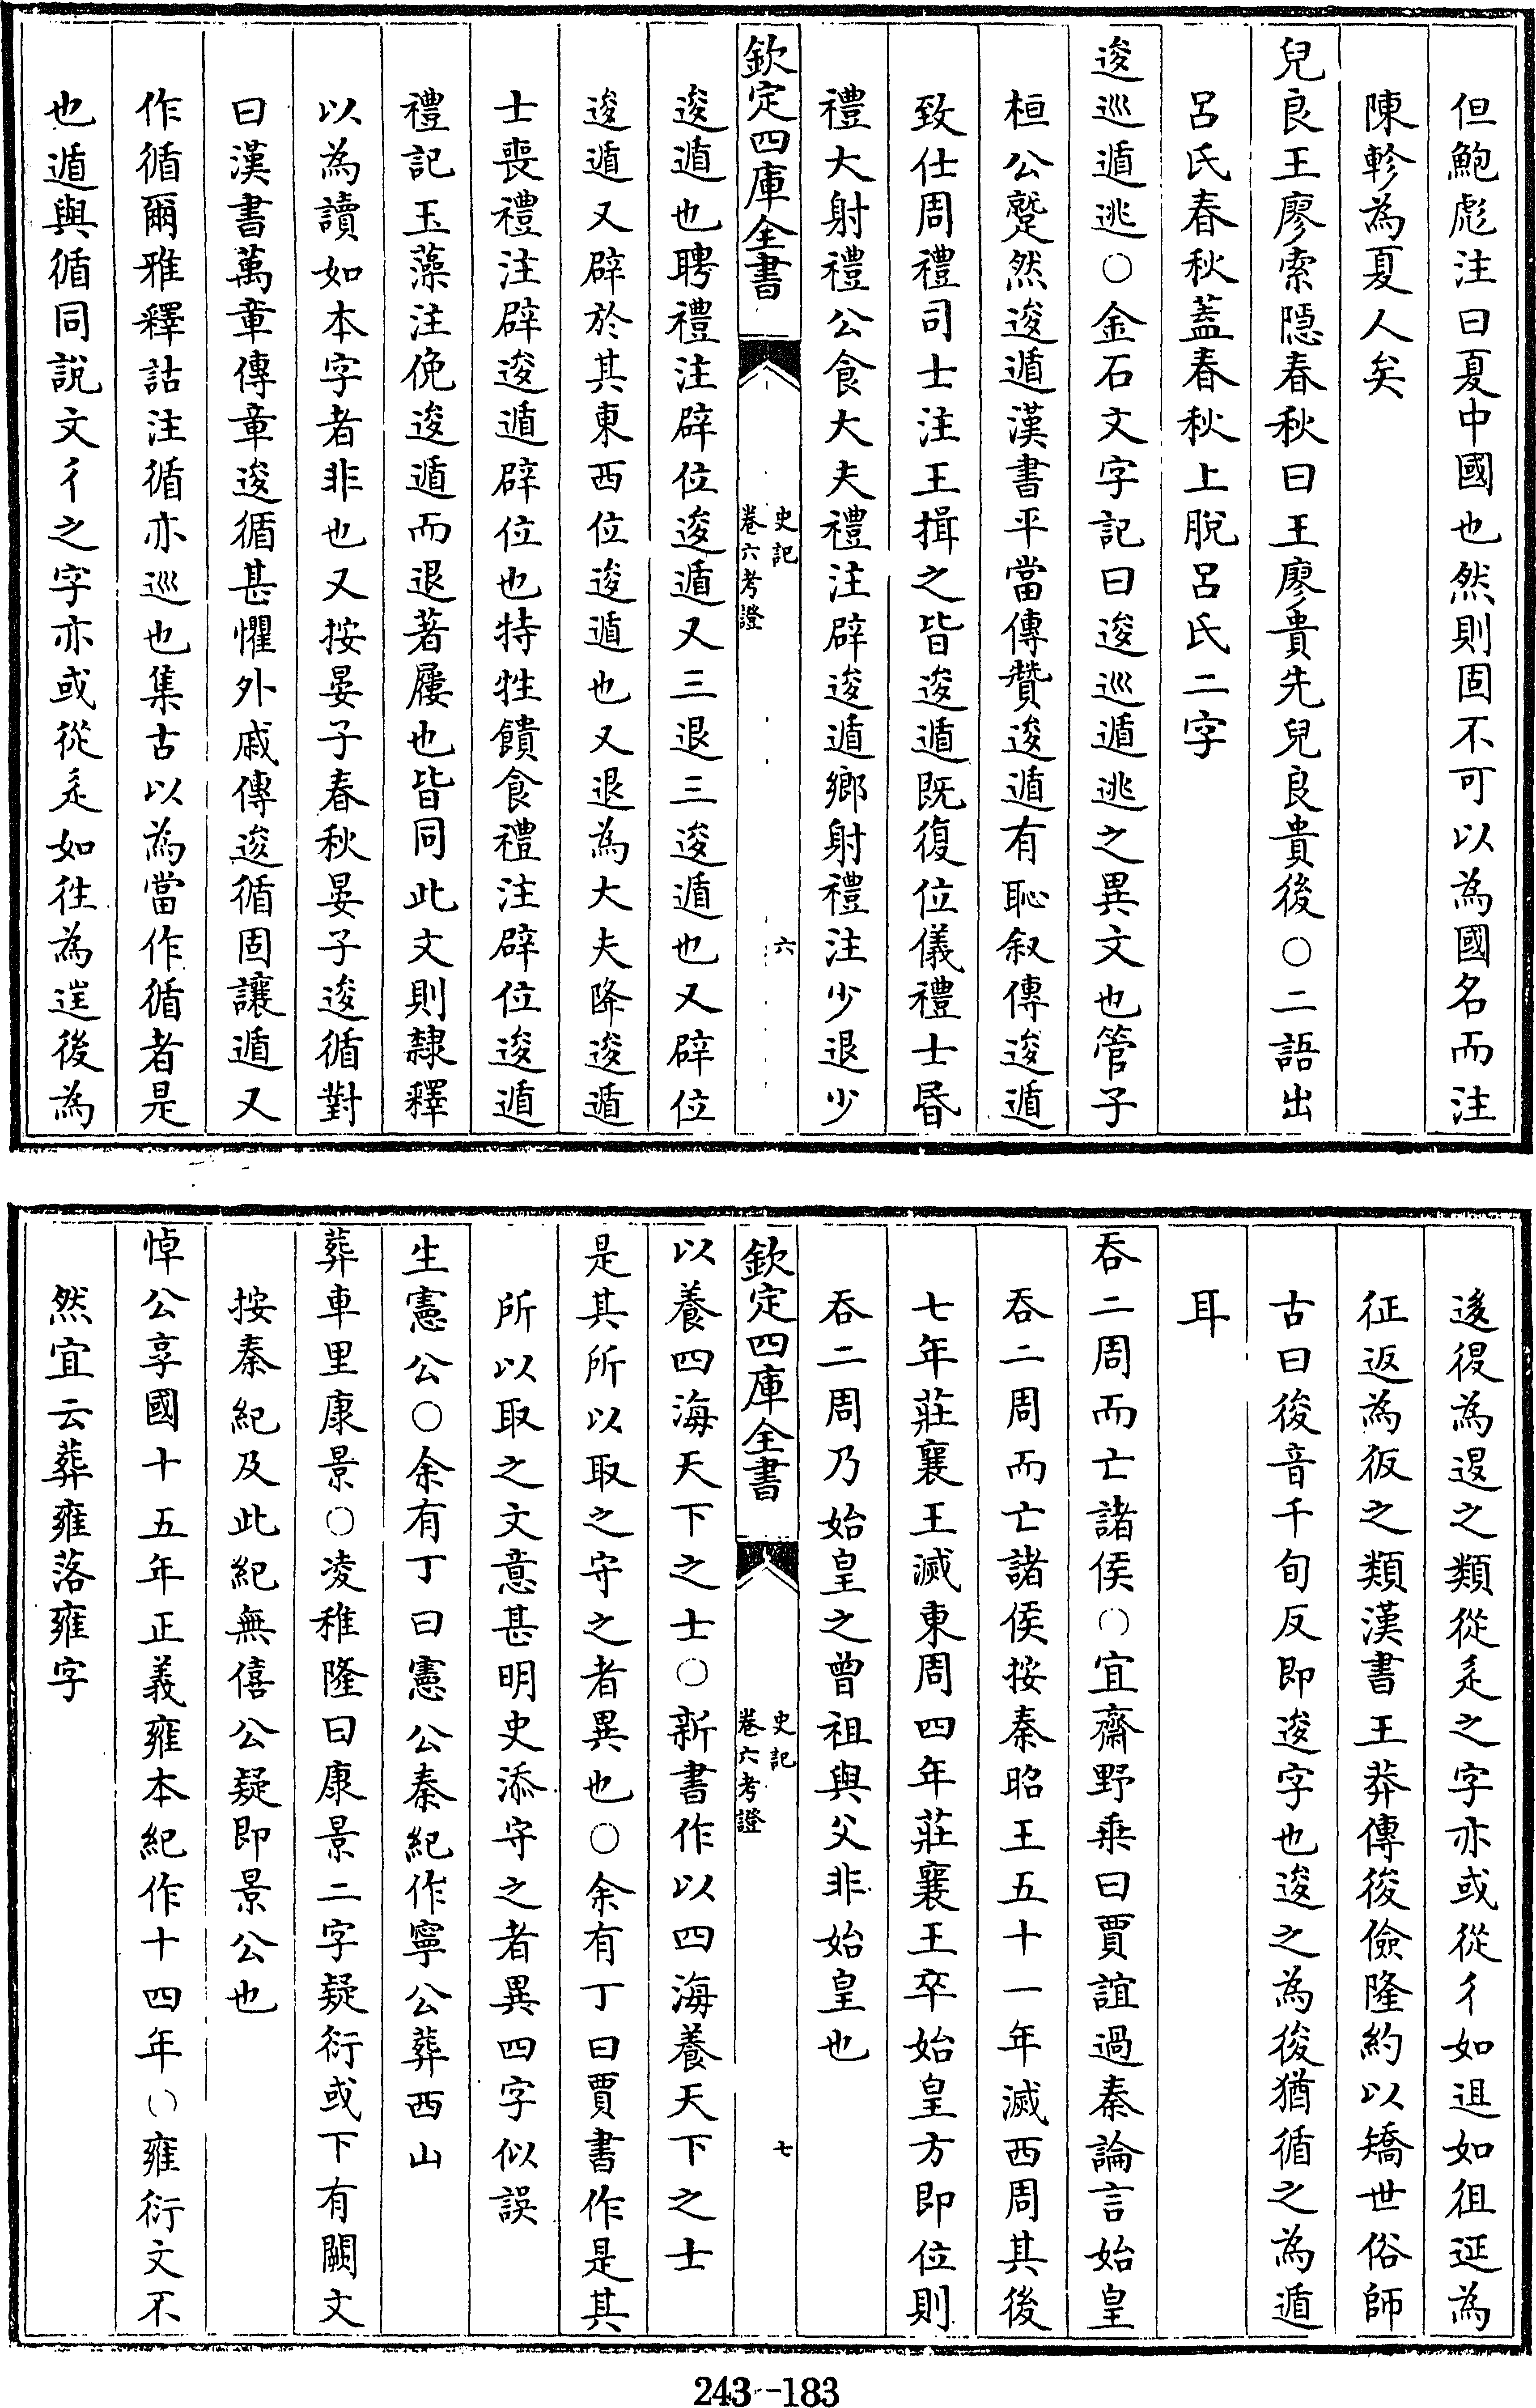 但鮑彪注曰夏中國也然則固不可以為國名而注
陳軫為夏人矣
兒良王廖索隱春秋曰王廖貴先兒良貴後○二語出
呂氏春秋蓋春秋上脫呂氏二字
逡巡遁逃○金石文字記曰逡巡遁逃之異文也管子
桓公蹵然逡遁漢書平當傳贊逡遁有恥叙傳逡遁
致仕周禮司士注王揖之皆逡遁既復位儀禮士昏
禮大射禮公食大夫禮注辟逡遁鄉射禮注少退少
欽定四庫全書
史記
卷六考證
六
逡遁也聘禮注辟位逡遁又三退三逡遁也又辟位
逡遁又辟於其東西位逡遁也又退為大夫降逡遁
士喪禮注辟逡遁辟位也特牲饋食禮注辟位逡遁
禮記玉藻注俛逡遁而退著屨也皆同此文則隸釋
以為讀如本字者非也又按晏子春秋晏子逡循對
曰漢書萬章傳章逡循甚懼外戚傳逡循固讓遁又
作循爾雅釋詁注循亦巡也集古以為當作循者是
也遁與循同說文彳之字亦或從辵如徃為迬後為
逡𢓴為退之類從辵之字亦或從彳如𨑢如徂延為
征返為彶之類漢書王莽傳後儉隆約以矯世俗師
古曰後音千旬反即逡字也逡之為後猶循之為遁
耳
吞二周而亡諸侯○宜齋野乘曰賈誼過秦論言始皇
吞二周而亡諸侯按秦昭王五十一年滅西周其後
七年莊襄王滅東周四年莊襄王卒始皇方即位則
吞二周乃始皇之曾祖與父非始皇也
欽定四庫全書
史記
卷六考證
七
以養四海天下之士○新書作以四海養天下之士
是其所以取之守之者異也○余有丁曰賈書作是其
所以取之文意甚明史添守之者異四字似誤
生憲公○余有丁曰憲公秦紀作寧公葬西山
葬車里康景○凌稚隆曰康景二字疑衍或下有闕文
按秦紀及此紀無僖公疑即景公也
悼公享國十五年正義雍本紀作十四年○雍衍文不
然宜云葬雍落雍字
243-183